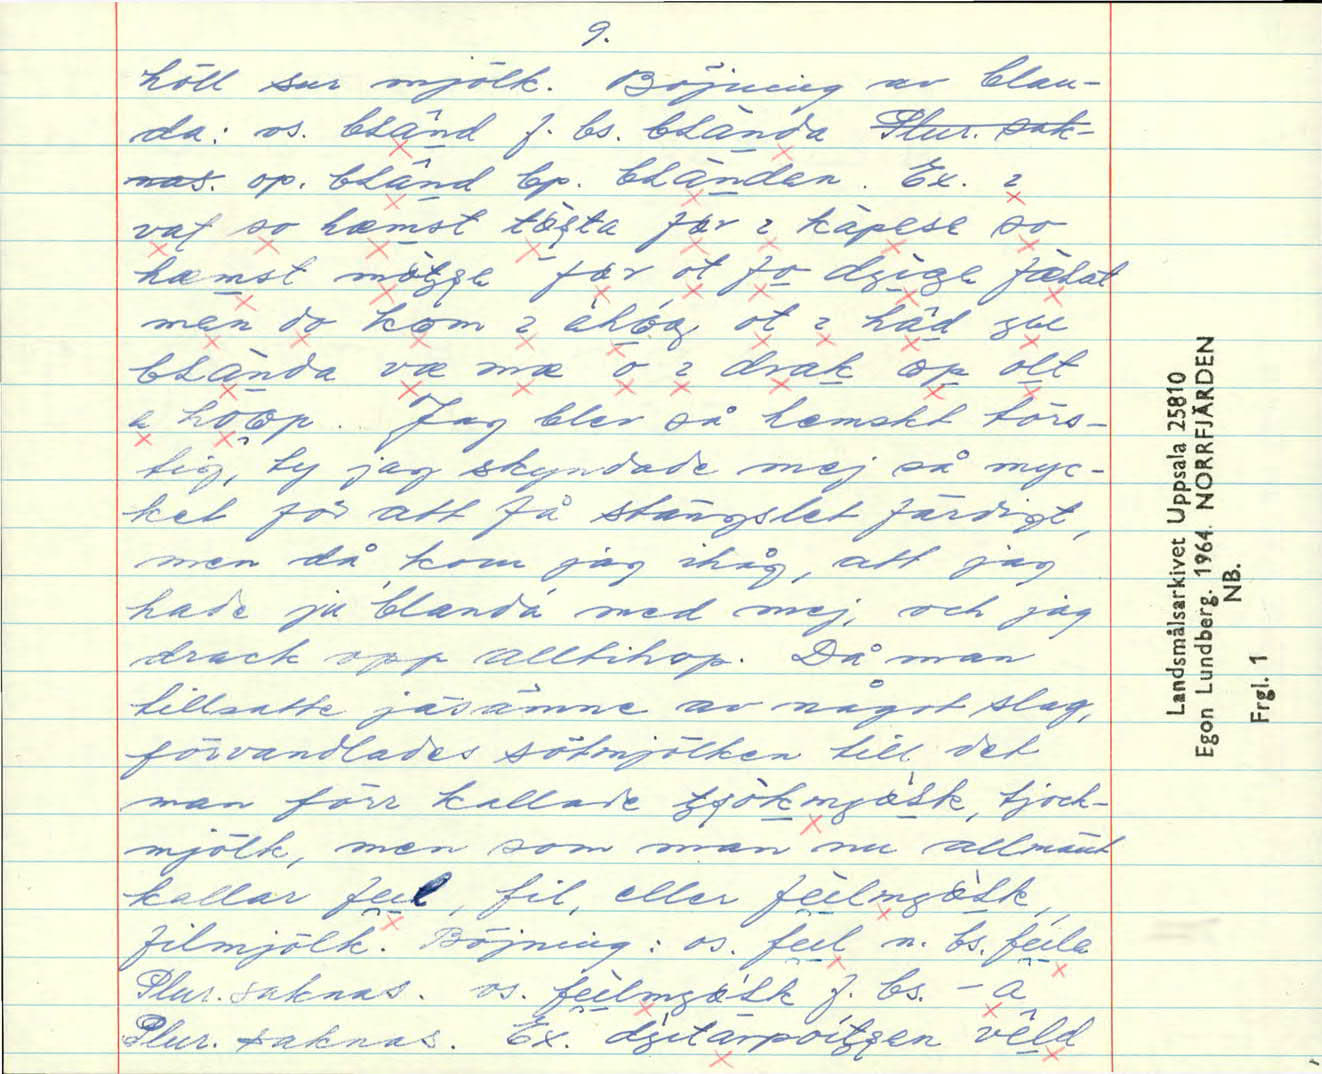 9.
höll sur mjölk. Böjning av blan-
da: os. bLând f. bs. bLànda Plur. sak-
nas. op. bLând bp. bLànden. Ex. ɿ
vaʈ so hæmst tøʂta før ɿ kàpese so
hæmst møtʒe før ot fo dʒiʒe fæLat
men do kom ɿ ot ɿ hâd
bLànda væ mæ o ɿ drak op olt
a hoop. Jag blev så hemskt törs-
tig, ty jag skyndade mej så myc-
ket för att få stängslet färdigt,
men då kom jag ihåg, att jag
hade ju 'blanda' med mej, och jag
drack opp alltihop. Då man
tillsatte jäsämne av något slag,
förvandlades sötmjölken till det
man förr kallade tjock-
mjölk, men som man nu allmänt
kallar feil, fil, eller
filmjölk. Böjning: os. feil n. bs. feila
Plur. saknas. os. f. bs. -a
Plur. saknas. Ex. vêld
Landsmålsarkivet Uppsala 25810
Egon Lundberg. 1964. NORRFJÄRDEN
NB.
Frgl. 1